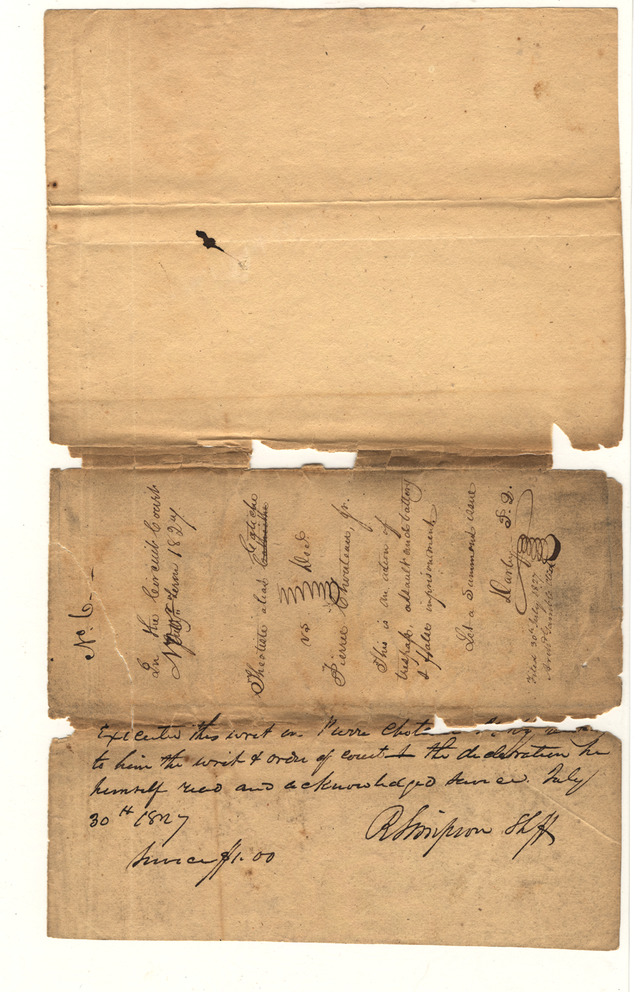 No. 6
In the Circuit Court
July Term 1827
Theotiste alias Catiche
vs
Pierre Chouteau, Jr.
This is an action of
trespass, assault and battery
& false imprisonment
Let a summons issue
Darby P. Q.
Filed 30th July 1827
Executed this writ on Pierre
to him the writ & order of court & the declaration he
himself read and acknowledged service. July
30th 1827
R Simpson Shff
Service $1.00